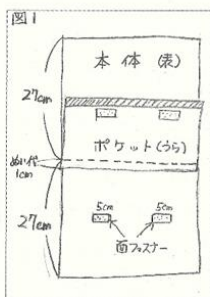 図1
本体(表)
27cm
ポケット(うら)
ぬい代
1cm
27cm
5cm 5cm
面ファスナー